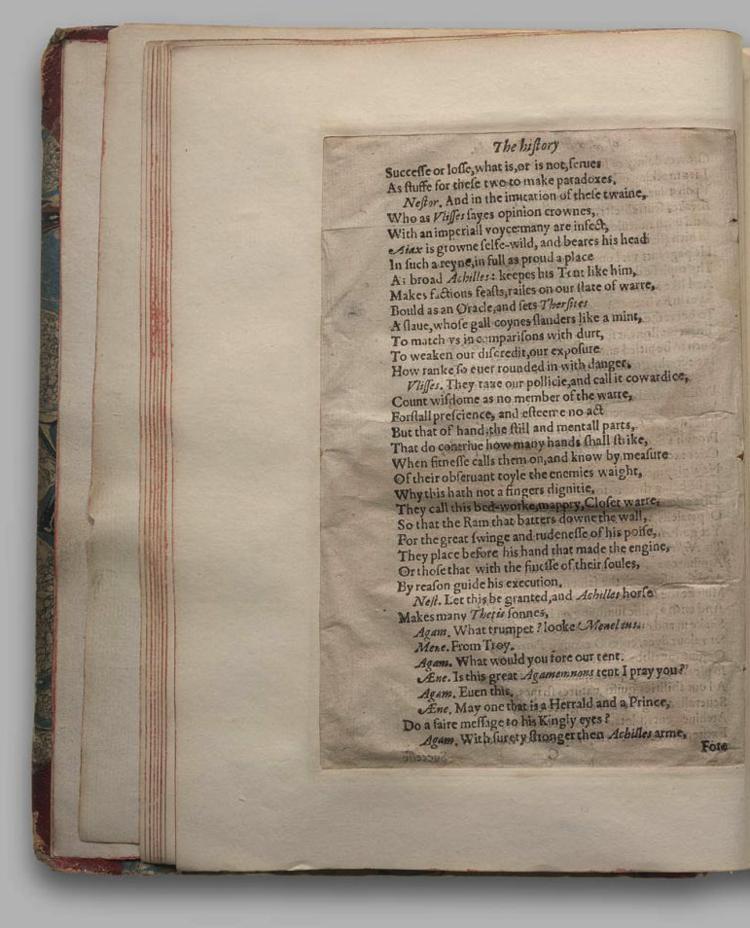 The hiſtory
Succeſſe or loſſe, what is, or is not, ſerues
As ſtuffe for theſe two to make paradoxes.
Neſtor. And in the imitation of theſe twaine,
Who as Vliſſes ſayes opinion crownes,
With an imperiall voyce: many are infect,
Aiax is growne ſelfe-wild, and beares his head
In ſuch a reyne, in full as proud a place
As broad Achilles: keepes his Tent like him,
Makes factious feaſts, railes on our ſtate of warre,
Bould as an Oracle, and ſets Therſites
A ſlaue, whoſe gall coynes ſlanders like a mint,
To match vs in compariſons with durt,
To weaken our diſcredit, our expoſure
How ranke ſo euer rounded in with danger.
Vliſſes. They taxe our pollicie, and call it cowardice,
Count wiſdome as no member of the warre,
Forſtall preſcience, and eſteeme no act
But that of hand: the ſtill and mentall parts,
That do contriue how many hands ſhall ſtrike,
When fitneſſe calls them on, and know by meaſure
Of their obſeruant toyle the enemies waight,
Why this hath not a fingers dignitie,
They call this bed-worke, mappry, Cloſet warre,
So that the Ram that batters downe the wall,
For the great ſwinge and rudeneſſe of his poiſe,
They place before his hand that made the engine,
Or thoſe that with the fineſſe of their ſoules,
By reaſon guide his execution.
Neſt. Let this be granted, and Achilles horſe
Makes many Thetis ſonnes,
Agam. What trumpet? looke Menelaus.
Mene. From Troy.
Agam. What would you fore our tent.
Æne. Is this great Agamemnons tent I pray you?
Agam. Euen this,
Æne. May one that is a Herrald and a Prince,
Do a faire meſſage to his Kingly eyes?
Agam. With ſurety ſtronger then Achilles arme,
Fore